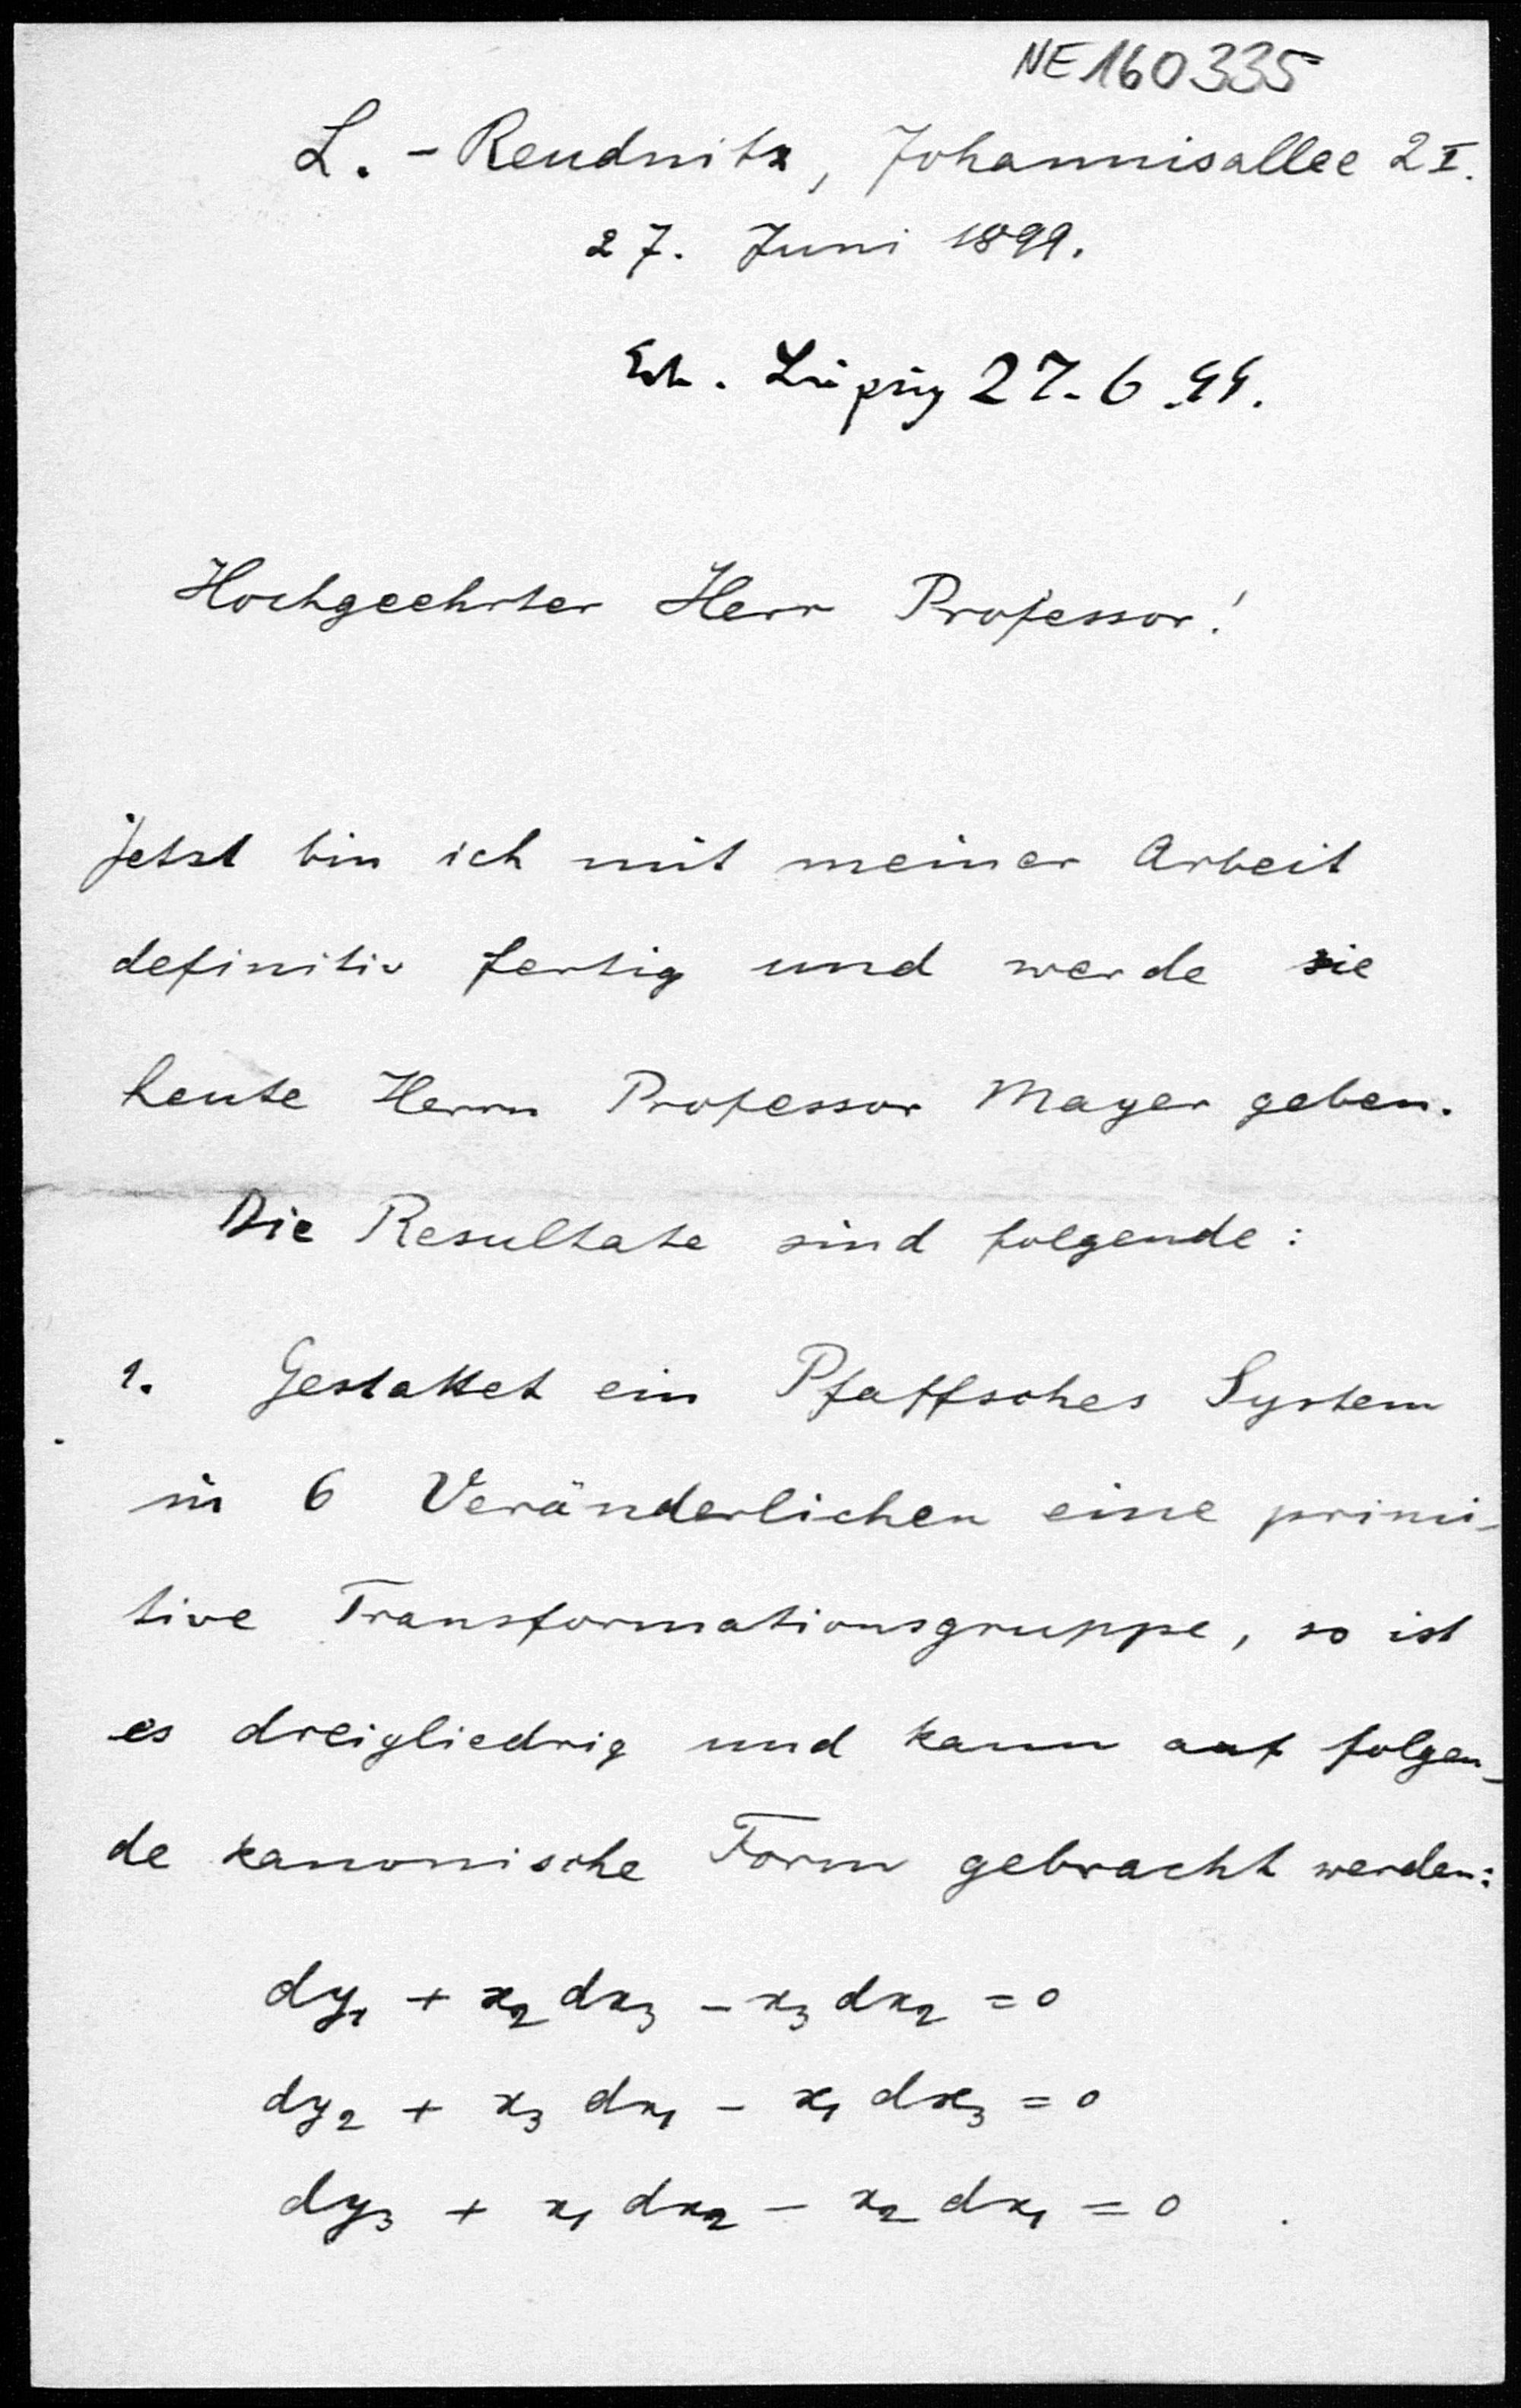 NE160335
L. - Reudnitz, Johannisallee 2 I.
27. Juni 1899.
Erh. Leipzig 27.6.99.
Hochgeehrter Herr Professor!
jetzt bin ich mit meiner Arbeit
definitiv fertig und werde sie
heute Herrn Professor Mayer geben.
Die Resultate sind folgende:
1. Gestattet ein Pfaffsches System
in 6 Veränderlichen eine primi-
tive Transformationsgruppe, so ist
es dreigliedrig und kann auf folgen-
de kanonische Form gebracht werden:
dy₁ + x₂ dx₃ - x₃ dx₂ = 0
dy₂ + x₃ dx₁ - x₁ dx₃ = 0
dy₃ + x₁ dx₂ - x₂ dx₁ = 0